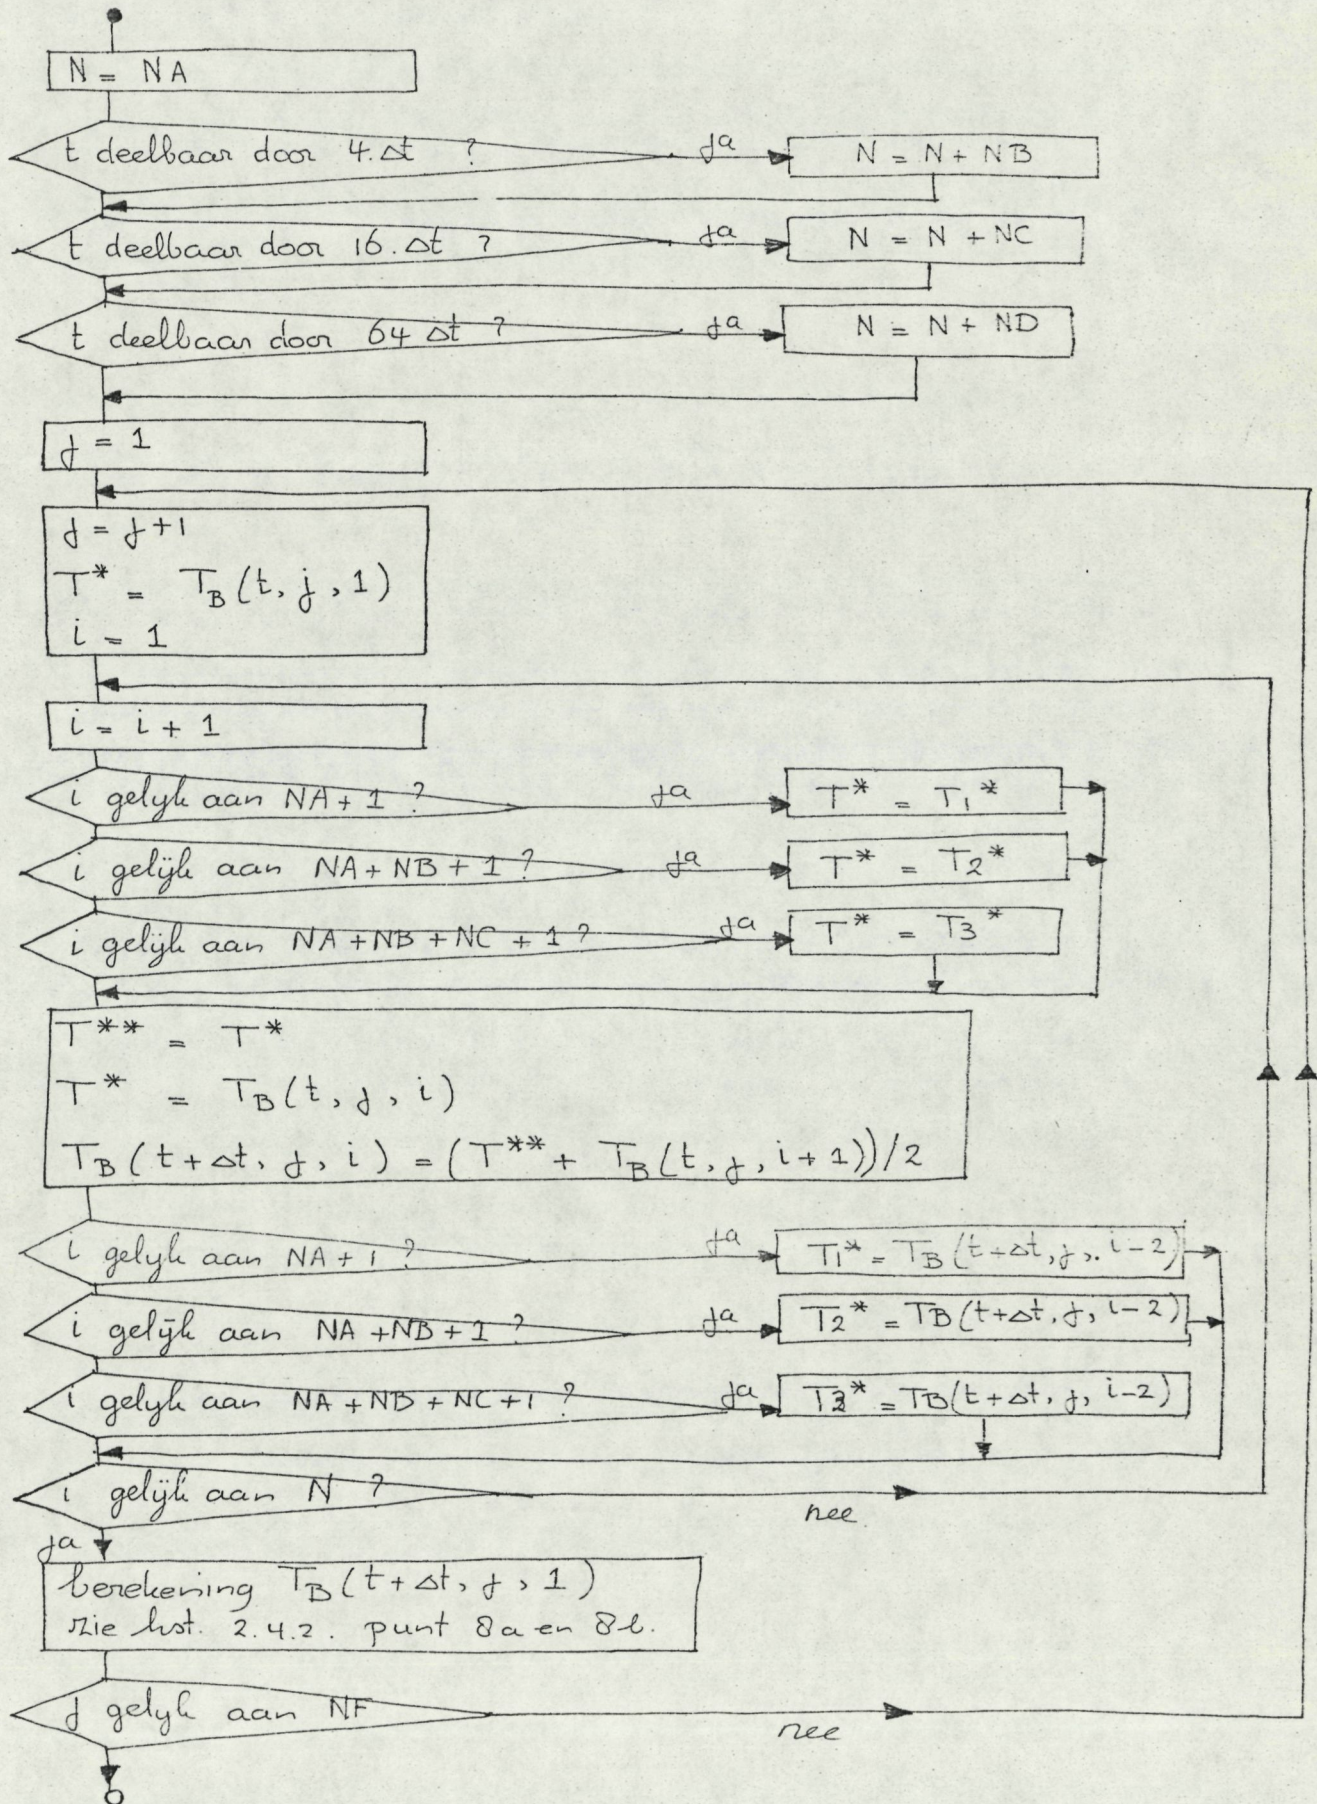 N = NA
t deelbaar door 4.Δt ? ja N = N + NB
t deelbaar door 16.Δt ? ja N = N + NC
t deelbaar door 64 Δt ? ja N = N + ND
j = 1
j = j+1
T* = T_B(t, j, 1)
i = 1
i = i + 1
i gelijk aan NA+1 ? ja T* = T1*
i gelijk aan NA+NB+1 ? ja T* = T2*
i gelijk aan NA+NB+NC+1 ? ja T* = T3*
T** = T*
T* = T_B(t, j, i)
T_B(t+Δt, j, i) = (T** + T_B(t, j, i+1))/2
i gelijk aan NA+1 ? ja T1* = T_B(t+Δt, j, i-2)
i gelijk aan NA+NB+1 ? ja T2* = TB(t+Δt, j, i-2)
i gelijk aan NA+NB+NC+1 ? ja T3* = TB(t+Δt, j, i-2)
i gelijk aan N ? nee
ja
berekening T_B(t+Δt, j, 1)
zie hst. 2.4.2. punt 8a en 8b.
j gelijk aan NF nee